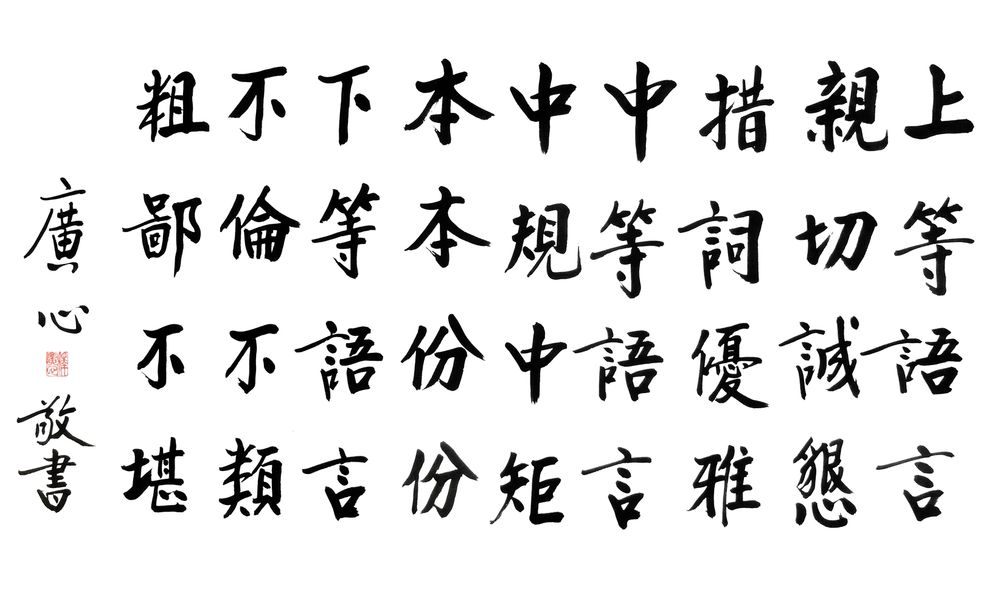 上等語言
親切誠懇
措詞優雅
中等語言
中規中矩
本本份份
下等語言
不倫不類
粗鄙不堪
廣心敬書